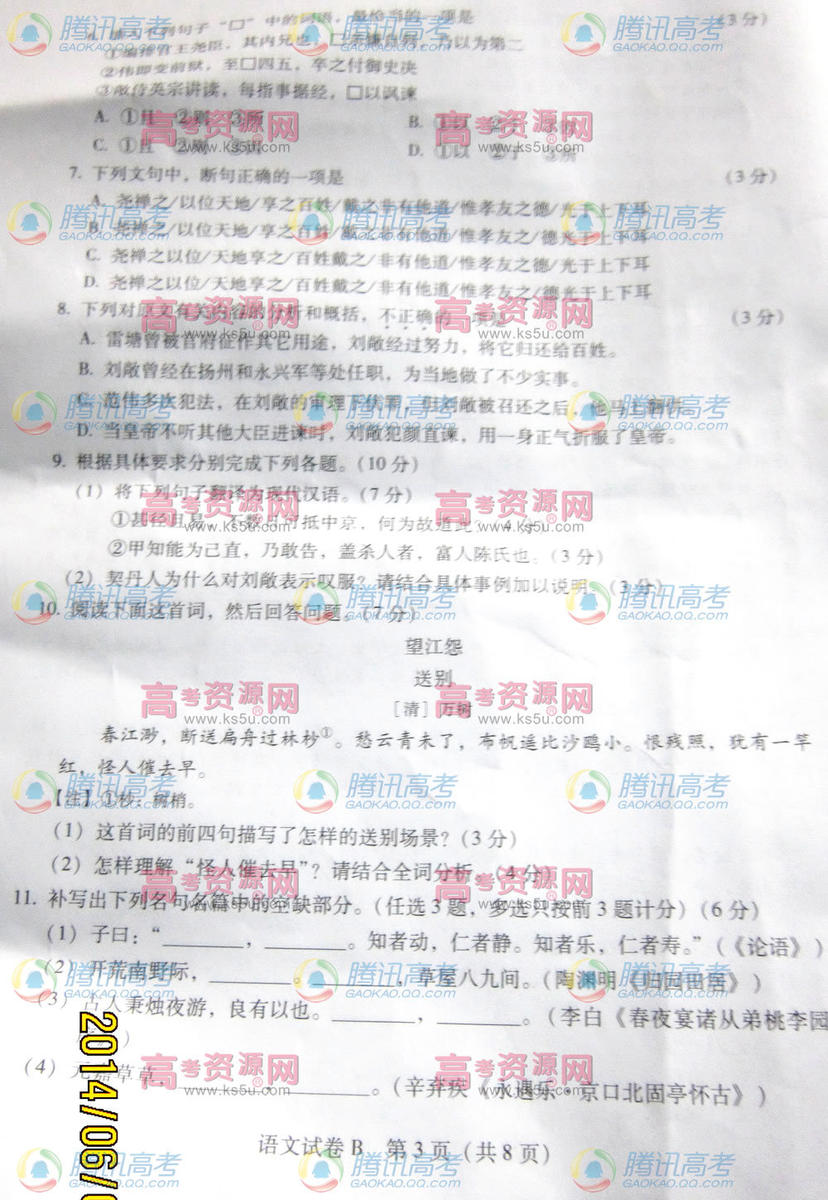 （3分）
①编排官王尧臣，其内兄也
以为第二
②伟即变前狱，至□四五，卒之付御史决
③敞侍英宗讲读，每指事据经，□以讽谏
A. ①且 ②则 ③所 B. ①以
C. ①且 D. ①以 ②于 ③所
7. 下列文句中，断句正确的一项是 （3分）
A. 尧禅之/以位天地/享之百姓/戴之非有他道/惟孝友之德/光于上下耳
B. 尧禅之/以位天地/享之百姓/戴之非有他道/惟孝友之德/光于上下耳
C. 尧禅之以位/天地享之/百姓戴之/非有他道/惟孝友之德/光于上下耳
D. 尧禅之以位/天地享之/百姓戴之/非有他道/惟孝友之/德光于上下耳
8. 下列对原文有关内容的分析和概括，不正确的一项是 （3分）
A. 雷塘曾被官府征作其它用途，刘敞经过努力，将它归还给百姓。
B. 刘敞曾经在扬州和永兴军等处任职，为当地做了不少实事。
C. 范伟多次犯法，在刘敞的审理下伏罪，但刘敞被召还之后，他马上翻供。
D. 当皇帝不听其他大臣进谏时，刘敞犯颜直谏，用一身正气折服了皇帝。
9. 根据具体要求分别完成下列各题。（10分）
（1）将下列句子翻译为现代汉语。（7分）
①甚径且易，不数日可抵中京，何为故道此？（4分）
②甲知能为己直，乃敢告，盖杀人者，富人陈氏也。（3分）
（2）契丹人为什么对刘敞表示叹服？请结合具体事例加以说明。（3分）
10. 阅读下面这首词，然后回答问题。（7分）
望江怨
送别
［清］万树
春江渺，断送扁舟过林杪①。愁云青未了，布帆遥比沙鸥小。恨残照，犹有一竿
红，怪人催去早。
【注】①杪：树梢。
（1）这首词的前四句描写了怎样的送别场景？（3分）
（2）怎样理解“怪人催去早”？请结合全词分析。（4分）
11. 补写出下列名句名篇中的空缺部分。（任选3题，多选只按前3题计分）（6分）
（1）子曰：“________，________。知者动，仁者静。知者乐，仁者寿。”（《论语》）
（2）开荒南野际，________。________，草屋八九间。（陶渊明《归园田居》）
（3）古人秉烛夜游，良有以也。________，________。（李白《春夜宴诸从弟桃李园
）
（4）元嘉草草，________，________。（辛弃疾《永遇乐·京口北固亭怀古》）
语文试卷B 第3页（共8页）
2014/06/
腾讯高考
GAOKAO.QQ.COM
高考资源网
www.ks5u.com